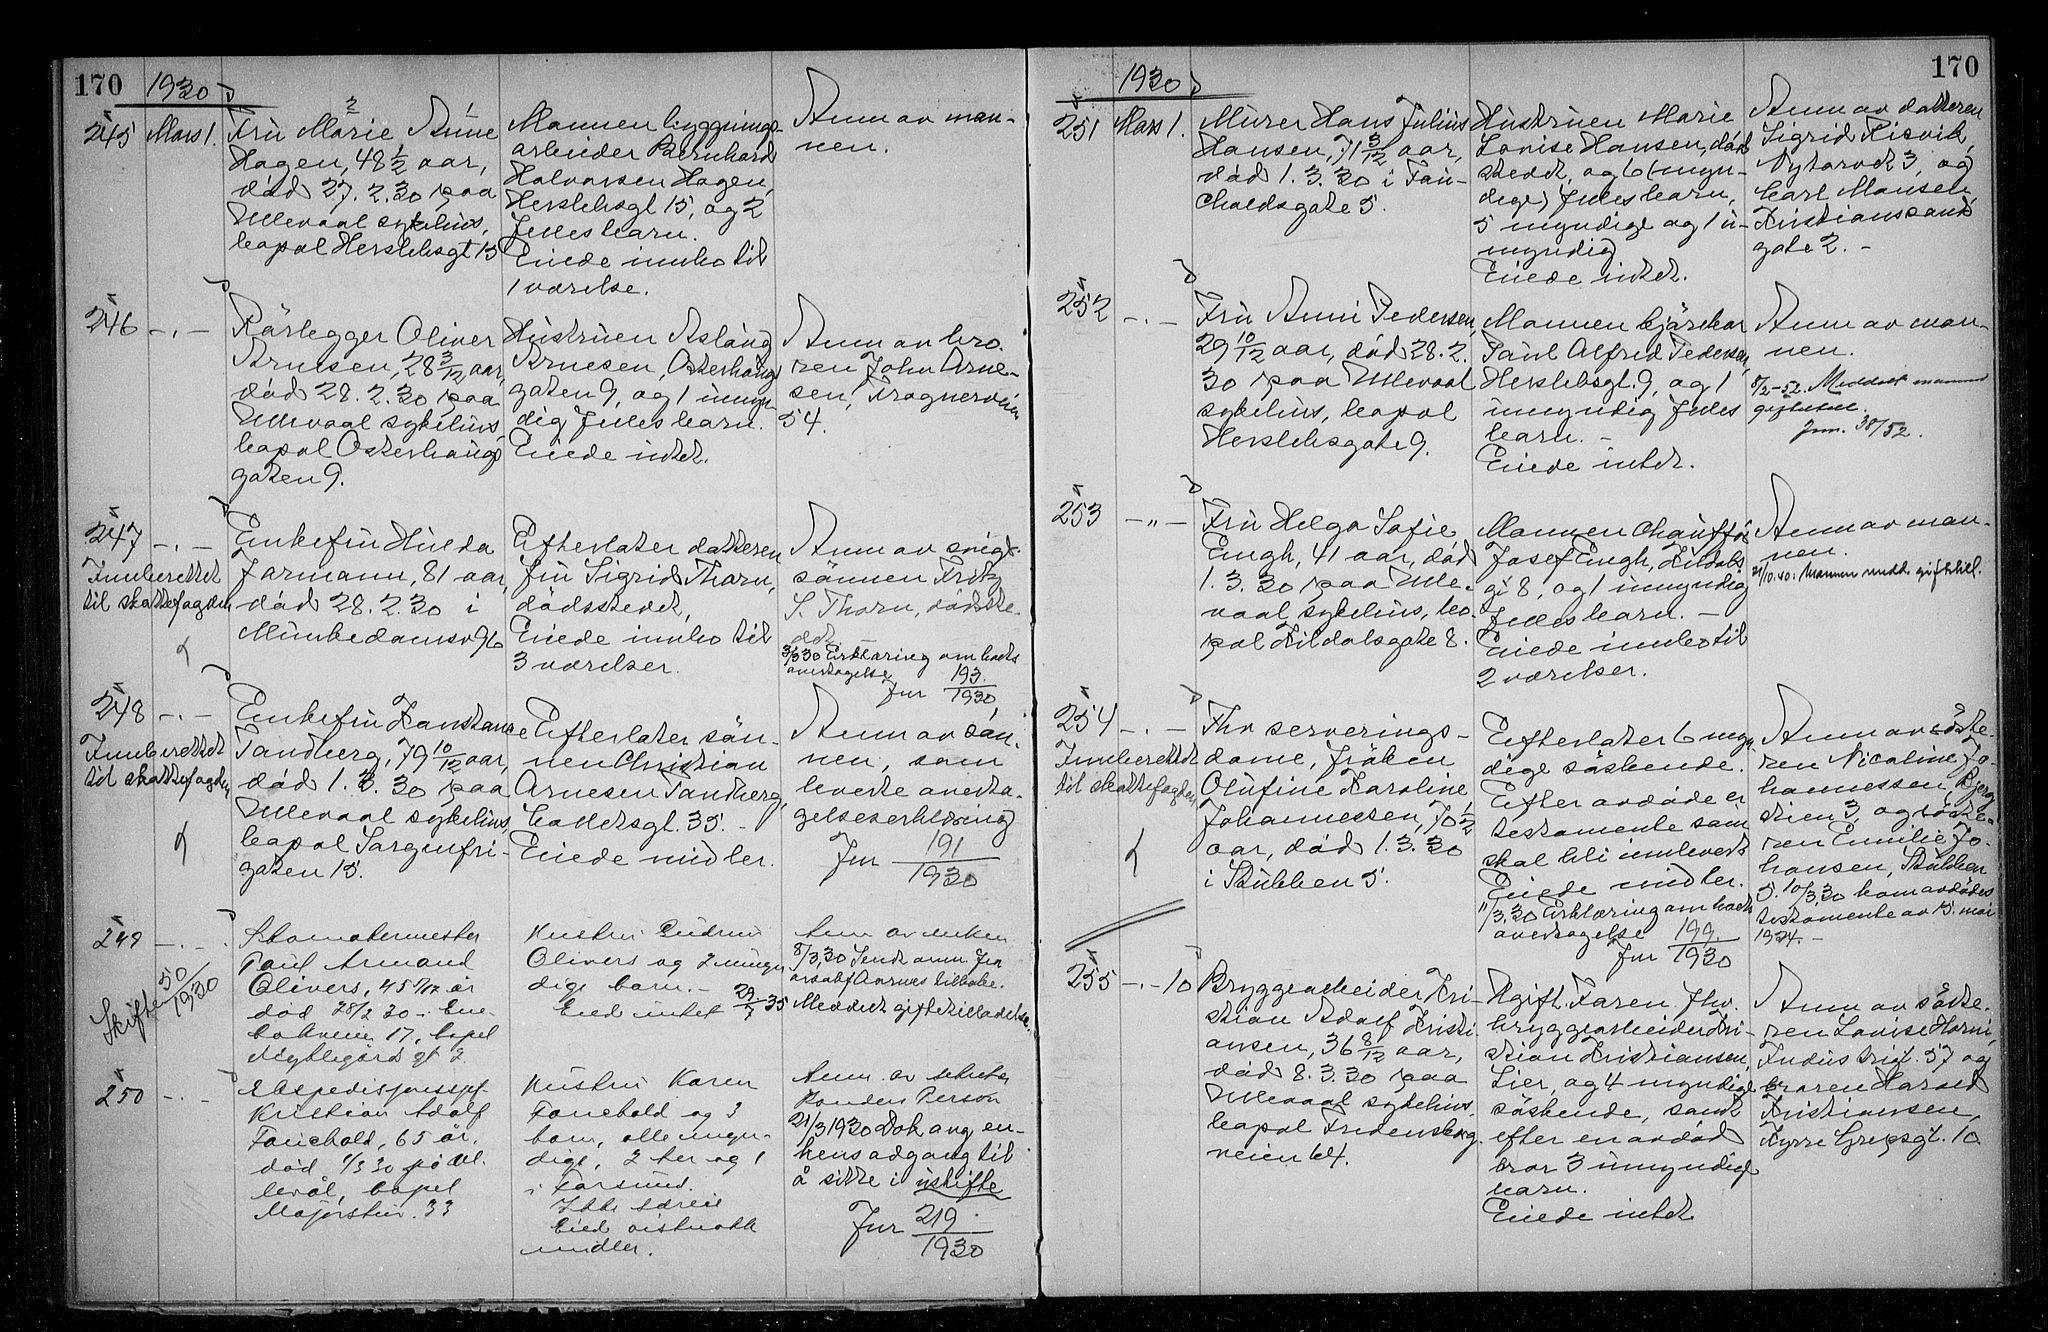 170
1930
245 Mars 1.
Fru Marie Anne
Hagen, 48 1/2 aar,
død 27.2.30 paa
Ullevaal sykehus,
bopæl Herslebsgt 15
Mannen bygnings-
arbeider Bernhard
Halvorsen Hagen,
Herslebsgt 15, og 2
felles barn.
Eiede innbo til
1 værelse.
Anm av man-
nen.
246 -.-
Rørlegger Oliver
Arnesen, 28 3/12 aar,
død 28.2.30 paa
Ullevaal sykehus,
bopæl Osterhaugs
gaten 9.
Hustruen Aslaug
Arnesen, Osterhaugs
gaten 9, og 1 umyn
dig felles barn.
Eiede intet.
Anm av bro.
ren John Arne-
sen, Frognerveien
54.
247 -.-
Innberettet
til skattefogden
Enkefru Hulda
Jarmann, 81 aar,
død 28.2.30 i
Munkedamsv 96
Efterlater datteren
fru Sigrid Thorn,
dødsstedet,
Eiede innbo til
3 værelser.
Anm av svig.
sønnen Fritz
S. Thorn, dødsste-
det. -
3/3 30 Erklæring om boets
overtagelse
Jnr 193/1930
248 -.-
Innberettet
til skattefogden
Enkefru Konstance
Tandberg, 79 10/12 aar,
død 1.3.30 paa
Ullevaal sykehus
bopæl Sorgenfri-
gaten 15.
Efterlater søn-
nen Christian
Arnesen Tandberg,
Eiede midler.
Anm av søn.
nen, som
leverte overta-
gelseserklæring
Jnr 191/1930
249 -.-
Skifte 50/1930
Skomakermester
Paul Armand
Olivers, 45 år
død 28/2 30 -
17, bopel
gt 2
Hustru Gudrun
Olivers og 2 umyn
dige barn. -
Eied intet
Anm av enken
8/3 30 Sendt anm fra
29/7 35
Meddelt giftetilladelse.
250 -.-
Ekspedisjonssjef
Kristian Adolf
Fanehold, 65 år,
død 1/3 30 på Ul.
levål, bopel
Majorstuv. 33
Hustru Karen
Fanehold og 3
barn, alle myn-
dige, 2 her og 1
i Farsund.
Ikke særeie
Eied
midler.
Anm. av
Person
21/3 1930 Dok ang en-
kens adgang til
å sitte i uskifte
Jnr 219/1930
170
1930
251 Mars 1.
Murer Hans Julius
Hansen, 71 3/12 aar,
død 1.3.30 i Fau-
choldsgate 5.
Hustruen Marie
Lovise Hansen, død
stedet, og 6 (myn-
dige) felles barn,
5 myndige og 1 u-
myndig
Eiede intet.
Anm av datteren
Sigrid Risvik,
Nytorvet 3, og
Carl Hansen
Kristianssands
gate 2. -
252 -.-
Fru Anni Pedersen,
29 10/12 aar, død 28.2.
30 paa Ullevaal
sykehus, bopæl
Herslebsgate 9.
Mannen kjørekar
Paul Alfred Pedersen,
Herslebsgt. 9, og 1
umyndig felles
barn. -
Eiede intet.
Anm av man-
nen.
8/2-52. Meddelt mannen
giftetill.
Jnr. 38/52.
253 -"-
Fru Helga Sofie
Engh, 41 aar, død
1.3.30 paa Ulle-
vaal sykehus, bo-
pæl Lildalsgate 8.
Mannen chauffør
Josef Engh, Lildals
gt 8, og 1 umyndig
felles barn. -
Eiede innbo til
2 værelser.
Anm av man-
nen.
21/10.40: Mannen medd. giftetill.
254 -.-
Innberettet
til skattefogden
Fhv serverings-
dame, frøken
Olufine Karoline
Johannessen, 70 1/2
aar, død 1.3.30
i Stubben 5.
Efterlater 6 myn
dige søskende.
Efter avdøde er
testamente som
skal bli innlevert
Eiede midler.
11/3.30 Erklæring om boets
overtagelse
Jnr 199/1930
Anm av søste-
ren Nicoline Jo-
hannessen, Bjerg
stien 3, og søste-
ren Emilie Jo-
hansen, Stubben
5. 10/3.30 kom avdødes
testamente av 15. mai
1924. -
255 -.- 10
Bryggearbeider Kri-
stian Adolf Kristi-
ansen, 36 8/12 aar,
død 8.3.30 paa
Ullevaal sykehus,
bopæl Fredensborg.
veien 64.
Ugift. Faren fhv.
bryggearbeider Kri-
stian Kristiansen,
Lier, og 4 myndige
søskende, samt
efter en avdød
bror 3 umyndige
barn.
Eiede intet
Anm av søste-
ren Lovise Horni,
Industrigt. 57 og
broren Harald
Kristiansen,
Kyrre Grepsgt. 10